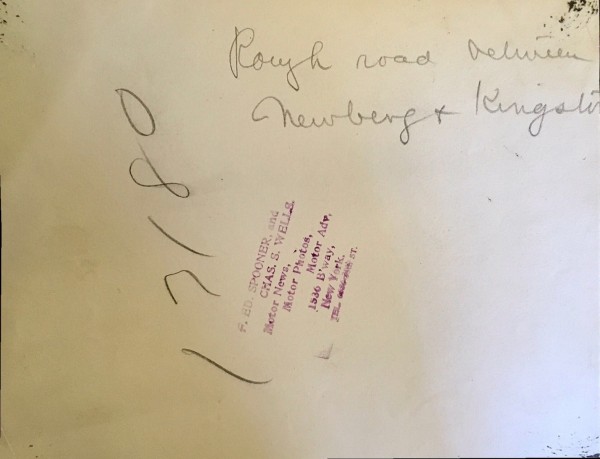 Rough road between
Newberg + Kingsto
17180
F. ED. SPOONER, and
CHAS. S. WELLS.
Motor News,
Motor Photos,
Motor Adv.
1536 B'way,
New York.
TEL. ST.